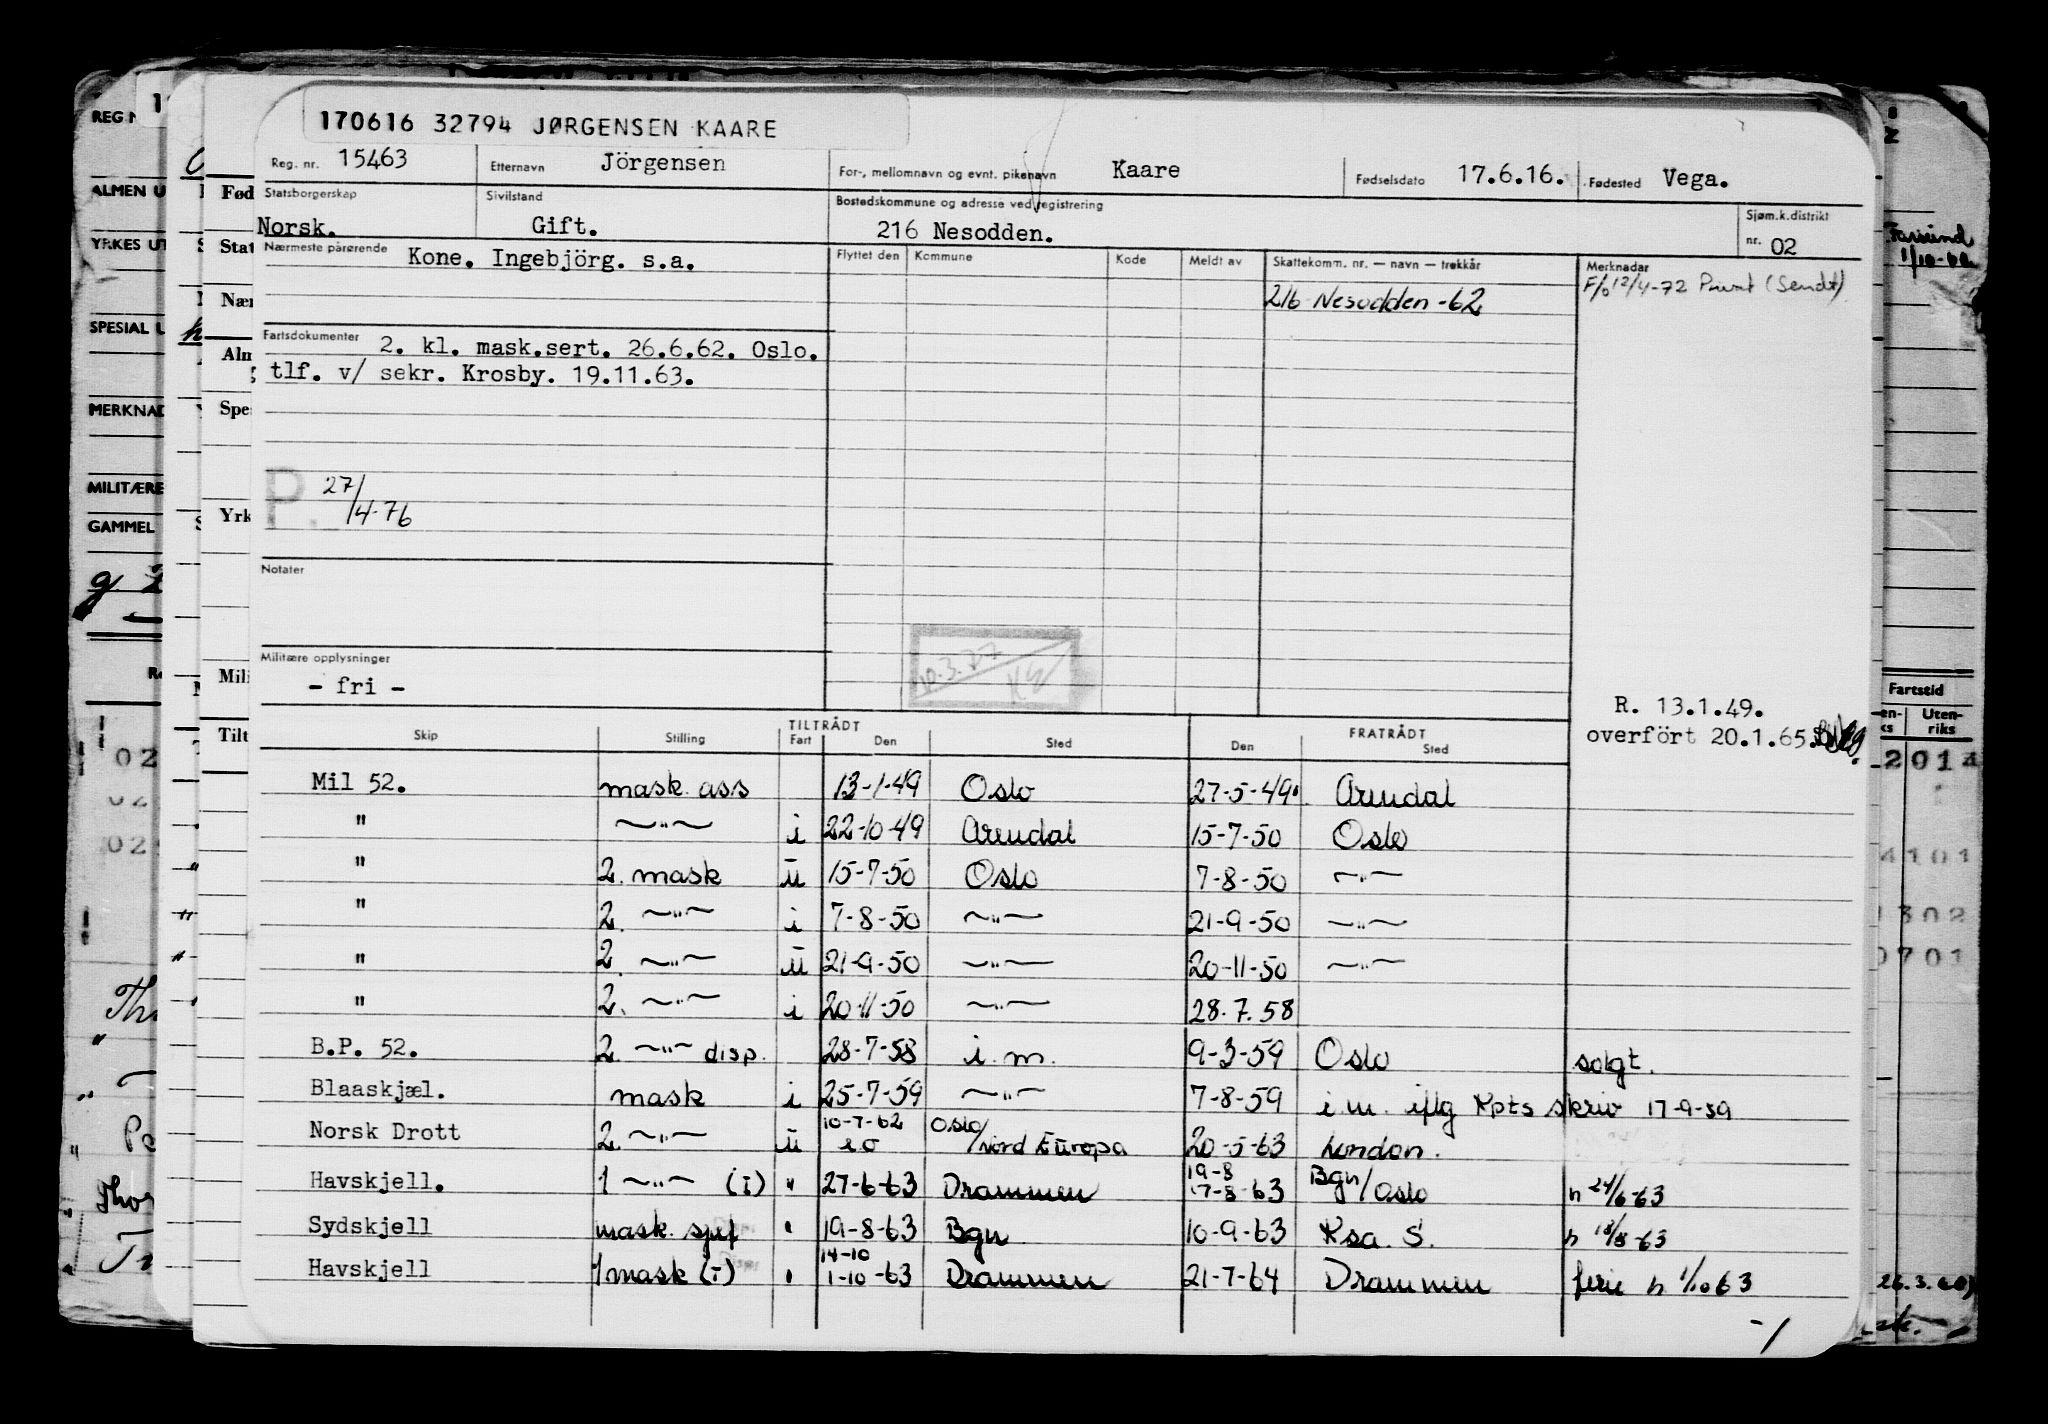 170616 32794 JØRGENSEN KAARE
Reg. nr. 15463 Etternavn Jörgensen For-, mellomnavn og evnt. pikenavn Kaare Fødselsdato 17.6.16. Fødested Vega.
Statsborgerskap Norsk. Sivilstand Gift. Bostedskommune og adresse ved registrering 216 Nesodden. Sjøm.k.distrikt nr. 02
Nærmeste pårørende Kone. Ingebjörg. s.a.
Flyttet den Kommune Kode Meldt av Skattekomm. nr. — navn — trekkår Merknadar
216 Nesodden -62 F/o 12/4-72 Privat (Sendt)
Fartsdokumenter 2. kl. mask.sert. 26.6.62. Oslo.
tlf. v/ sekr. Krosby. 19.11.63.
P. 27/4-76
Notater
10.3.77
Militære opplysninger
- fri -
R. 13.1.49.
overfört 20.1.65.
TILTRÅDT FRATRÅDT
Skip Stilling Fart Den Sted Den Sted
Mil 52. mask. ass 13-1-49 Oslo 27-5-49. Arendal
" —"— i 22-10-49 Arendal 15-7-50 Oslo
" 2. mask u 15-7-50 Oslo 7-8-50 —"—
" 2. —"— i 7-8-50 —"— 21-9-50 —"—
" 2. —"— u 21-9-50 —"— 20-11-50 —"—
" 2. —"— i 20-11-50 —"— 28.7.58
B.P. 52. 2. —"— disp. 28-7-58 i. m. 9-3-59 Oslo solgt.
Blaaskjæl. mask i 25-7-59 —"— 7-8-59 i.m. iflg Kpts skriv 17-9-59
Norsk Drott 2. —"— u 10-7-62 Oslo/Nord Europa 20-5-63 London.
Havskjell. 1 —"— (i) " 27-6-63 Drammen 19-8 17-8-63 Bgn/Oslo n 24/6-63
Sydskjell mask. sjef " 19-8-63 Bgn 10-9-63 Ksa. S. n 18/8-63
Havskjell 1 mask (i) " 14-10 1-10-63 Drammen 21-7-64 Drammen ferie n 1/10 63
-/
REG N
ALMEN U
YRKES UT
SPESIAL U
MERKNAD
MILITÆRE
GAMMEL
Fød
Stat
Nær
Alm
Spes
Yrk
Mili
Tilt
Farsund
Fartstid
Uten-
riks
2014
4101
1302
0701
26.3.60)